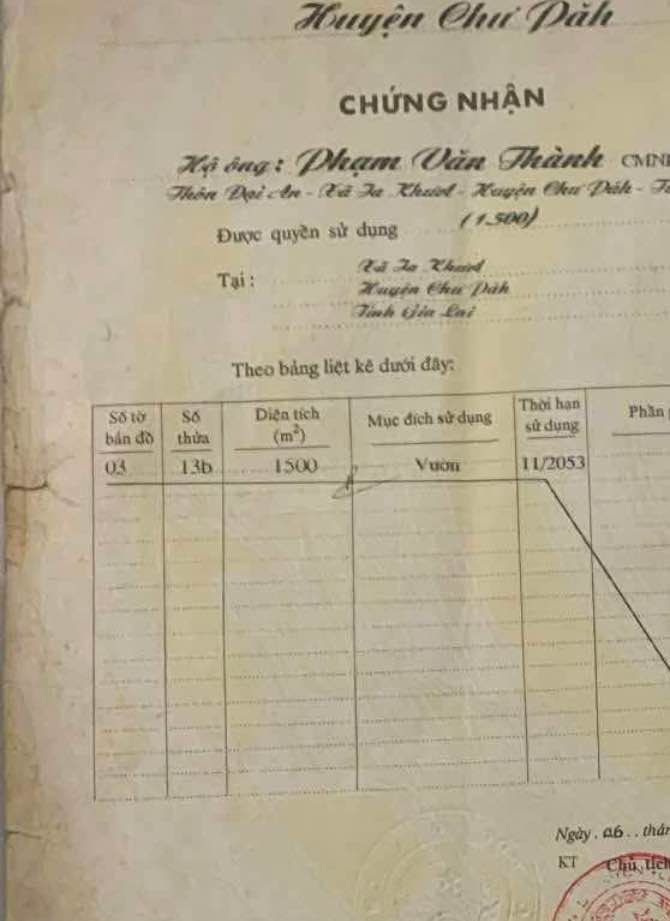 Huyện Chư Păh
CHỨNG NHẬN
Hộ ông: Phạm Văn Thành CMN
Thôn Đại An - Xã Ia Khươl - Huyện Chư Păh - T
Được quyền sử dụng (1.500)
Tại: Xã Ia Khươl
Huyện Chư Păh
Tỉnh Gia Lai
Theo bảng liệt kê dưới đây:
Số tờ bản đồ Số thửa Diện tích (m²) Mục đích sử dụng Thời hạn sử dụng Phần
03 13b 1500 Vườn 11/2053
Ngày. 06.. thán
KT Chủ tịch